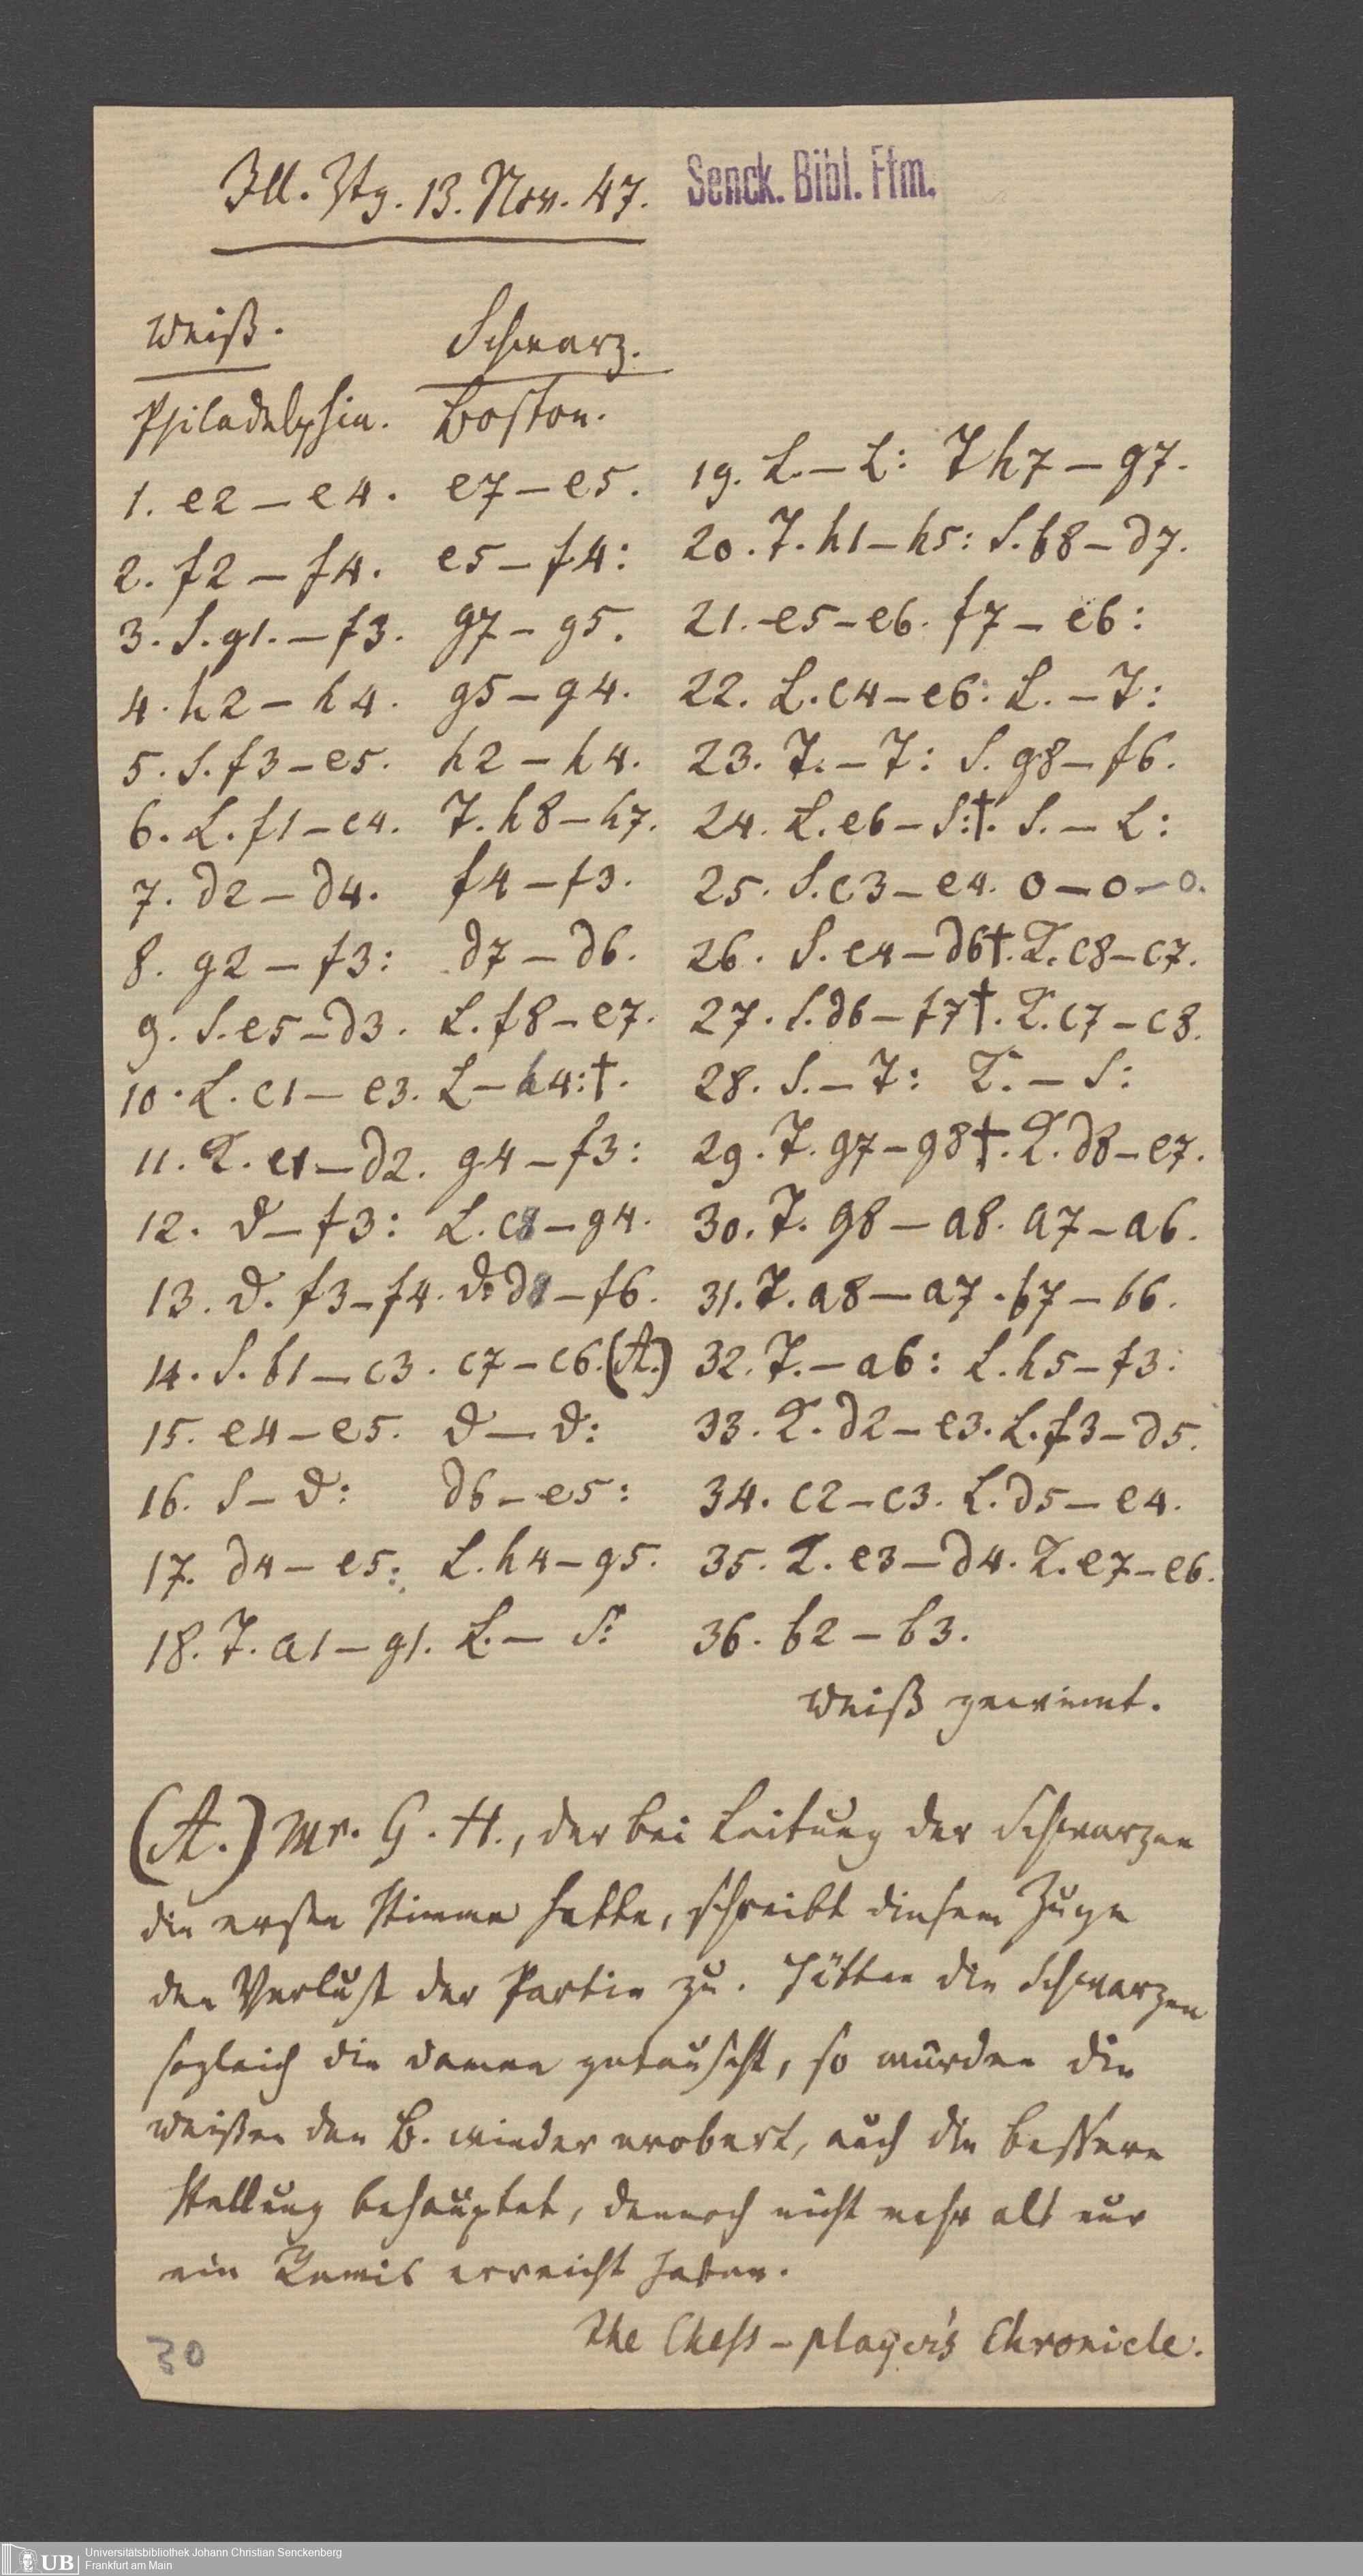 Ill. Ztg. 13. Nov. 47.
Senck. Bibl. Ffm.
Weiß.
Schwarz.
Philadelphia. Boston.
1. e2 – e4. e7 – e5.
2. f2 – f4. e5 – f4:
3. S. g1. – f3. g7 – g5.
4. h2 – h4. g5 – g4.
5. S. f3 – e5. h2 – h4.
6. L. f1 – c4. T. h8 – h7.
7. d2 – d4. f4 – f3.
8. g2 – f3: d7 – d6.
9. S. e5 – d3. L. f8 – e7.
10. L. c1 – e3. L – h4:†.
11. K. e1 – d2. g4 – f3:
12. D – f3: L. c8 – g4.
13. D. f3 – f4. D. d8 – f6.
14. S. b1 – c3. c7 – c6. (A.)
15. e4 – e5. D – D:
16. S – D: d6 – e5:
17. d4 – e5: L. h4 – g5.
18. T. a1 – g1. L. – S:
19. L. – L: T h7 – g7.
20. T. h1 – h5: S. b8 – d7.
21. e5 – e6. f7 – e6:
22. L. c4 – e6: L. – T:
23. T. – T: S. g8 – f6.
24. L. e6 – S:†. S. – L:
25. S. c3 – e4. 0 – 0 – 0.
26. S. e4 – d6†. K. c8 – c7.
27. S. d6 – f7†. K. c7 – c8.
28. S. – T: K. – S:
29. T. g7 – g8†. K. d8 – e7.
30. T. g8 – a8. a7 – a6.
31. T. a8 – a7. b7 – b6.
32. T. – a6: L. h5 – f3.
33. K. d2 – e3. L. f3 – d5.
34. c2 – c3. L. d5 – e4.
35. K. e3 – d4. K. e7 – e6.
36. b2 – b3.
Weiß gewinnt.
(A.) Mr. G. H., der bei Leitung der Schwarzen
die erste Stimme hatte, schreibt diesem Zuge
den Verlust der Partie zu. Hätten die Schwarzen
sogleich die Damen getauscht, so würden die
Weißen den B. wieder erobert, auch die bessere
Stellung behauptet, dennoch nicht mehr als nur
ein Remis erreicht haben.
The Chess-player's Chronicle.
30
UB Universitätsbibliothek Johann Christian Senckenberg
Frankfurt am Main